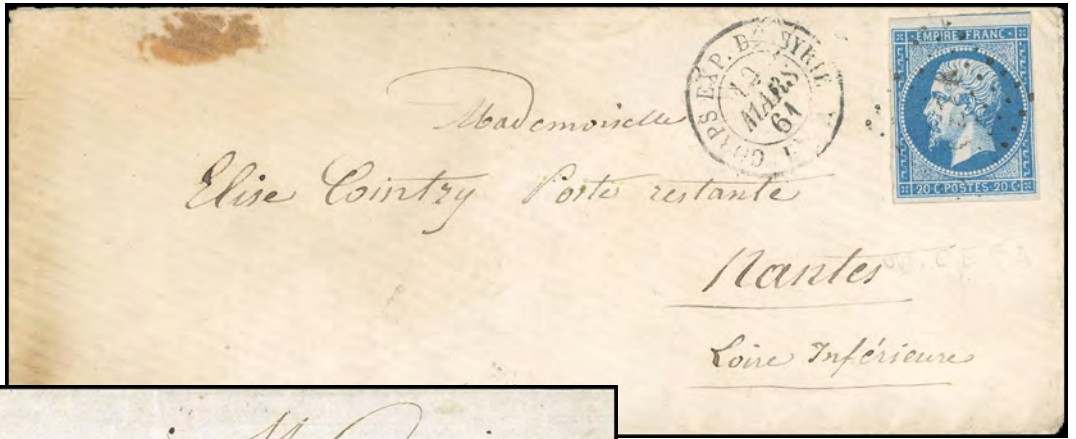 CORPS EXP. DE SYRIE
12
MARS
61
EMPIRE FRANC.
20 C. POSTES. 20 C.
Mademoiselle
Elise Cointry Poste restante
Nantes
Loire Inférieure